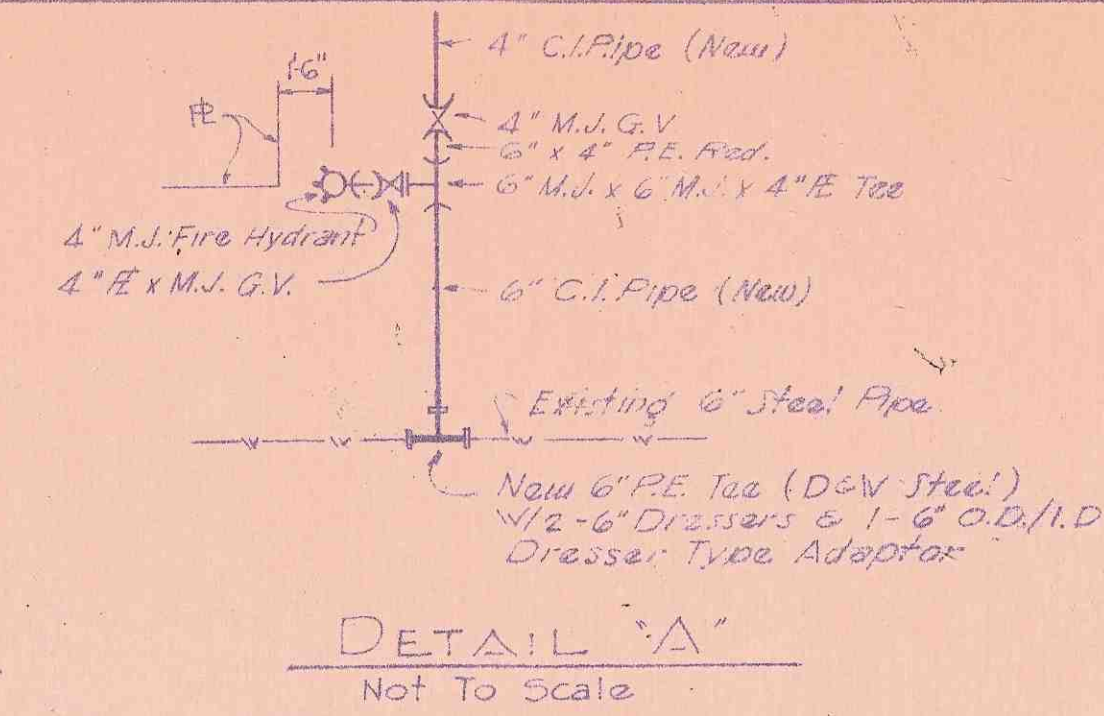 4" C.I. Pipe (New)
1'-6"
PL
4" M.J. G.V
6" x 4" P.E. Red.
6" M.J. x 6" M.J. x 4" FE Tee
4" M.J. Fire Hydrant
4" FE x M.J. G.V.
6" C.I. Pipe (New)
Existing 6" Steel Pipe
W W W W
New 6" P.E. Tee (D&W Steel)
W/2-6" Dressers & 1-6" O.D./I.D
Dresser Type Adaptor
DETAIL "A"
Not To Scale